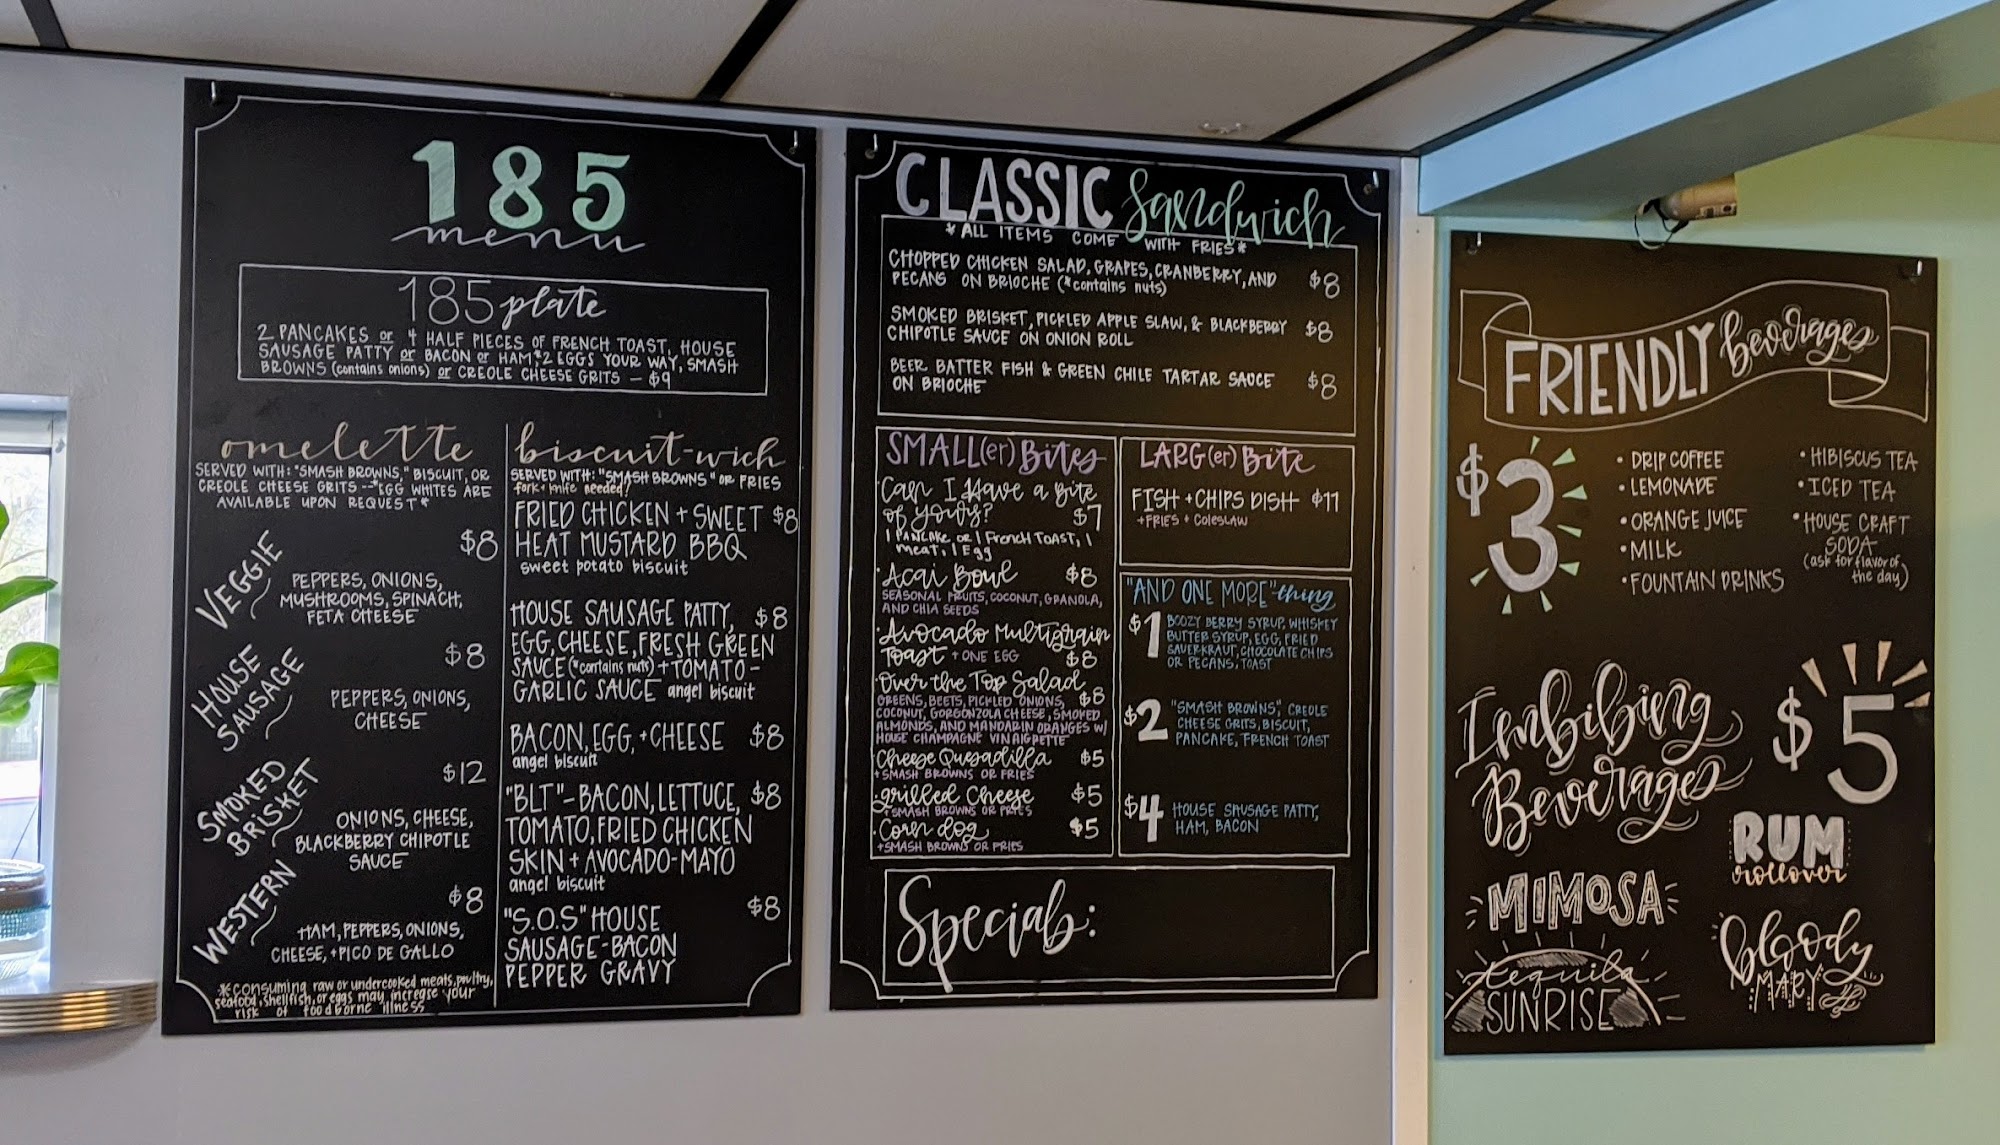 185
menu
185 plate
2 PANCAKES or 4 HALF PIECES OF FRENCH TOAST, HOUSE
SAUSAGE PATTY or BACON or HAM, 2 EGGS YOUR WAY, SMASH
BROWNS (contains onions) or CREOLE CHEESE GRITS — $9
omelette
SERVED WITH: "SMASH BROWNS," BISCUIT, OR
CREOLE CHEESE GRITS - *EGG WHITES ARE
AVAILABLE UPON REQUEST*
VEGGIE
$8
PEPPERS, ONIONS,
MUSHROOMS, SPINACH,
FETA CHEESE
HOUSE
SAUSAGE
$8
PEPPERS, ONIONS,
CHEESE
SMOKED
BRISKET
$12
ONIONS, CHEESE,
BLACKBERRY CHIPOTLE
SAUCE
WESTERN
$8
HAM, PEPPERS, ONIONS,
CHEESE, + PICO DE GALLO
*consuming raw or undercooked meats, poultry,
seafood, shellfish, or eggs may increase your
risk of foodborne illness
biscuit-wich
SERVED WITH: "SMASH BROWNS" OR FRIES
fork + knife needed!
FRIED CHICKEN + SWEET $8
HEAT MUSTARD BBQ
sweet potato biscuit
HOUSE SAUSAGE PATTY, $8
EGG, CHEESE, FRESH GREEN
SAUCE (*contains nuts) + TOMATO-
GARLIC SAUCE angel biscuit
BACON, EGG, + CHEESE $8
angel biscuit
"BLT" - BACON, LETTUCE, $8
TOMATO, FRIED CHICKEN
SKIN + AVOCADO-MAYO
angel biscuit
"S.O.S" HOUSE $8
SAUSAGE-BACON
PEPPER GRAVY
CLASSIC Sandwich
*ALL ITEMS COME WITH FRIES*
CHOPPED CHICKEN SALAD, GRAPES, CRANBERRY, AND $8
PECANS ON BRIOCHE (*contains nuts)
SMOKED BRISKET, PICKLED APPLE SLAW, & BLACKBERRY $8
CHIPOTLE SAUCE ON ONION ROLL
BEER BATTER FISH & GREEN CHILE TARTAR SAUCE $8
ON BRIOCHE
SMALL(er) Bites
Can I Have a Bite
of yours? $7
1 PANCAKE or 1 French TOAST, 1
meat, 1 Egg
Acai Bowl $8
SEASONAL FRUITS, COCONUT, GRANOLA,
AND CHIA SEEDS
Avocado Multigrain
Toast + ONE EGG $8
Over the Top Salad
GREENS, BEETS, PICKLED ONIONS, $8
COCONUT, GORGONZOLA CHEESE, SMOKED
ALMONDS, AND MANDARIN ORANGES W/
HOUSE CHAMPAGNE VINAIGRETTE
Cheese Quesadilla $5
+SMASH BROWNS OR FRIES
grilled Cheese $5
+SMASH BROWNS OR FRIES
Corn dog $5
+SMASH BROWNS OR FRIES
LARG(er) Bite
FISH + CHIPS DISH $11
+FRIES + ColeSlaw
"AND ONE MORE" thing
$1 BOOZY BERRY SYRUP, WHISKEY
BUTTER SYRUP, EGG, FRIED
SAUERKRAUT, CHOCOLATE CHIPS
OR PECANS, TOAST
$2 "SMASH BROWNS", CREOLE
CHEESE GRITS, BISCUIT,
PANCAKE, FRENCH TOAST
$4 HOUSE SAUSAGE PATTY,
HAM, BACON
Specials:
FRIENDLY beverages
$3
• DRIP COFFEE
• LEMONADE
• ORANGE JUICE
• MILK
• FOUNTAIN DRINKS
• HIBISCUS TEA
• ICED TEA
• HOUSE CRAFT
SODA
(ask for flavor of
the day)
Imbibing
Beverages
$5
RUM
rollover
MIMOSA
bloody
MARY
tequila
SUNRISE